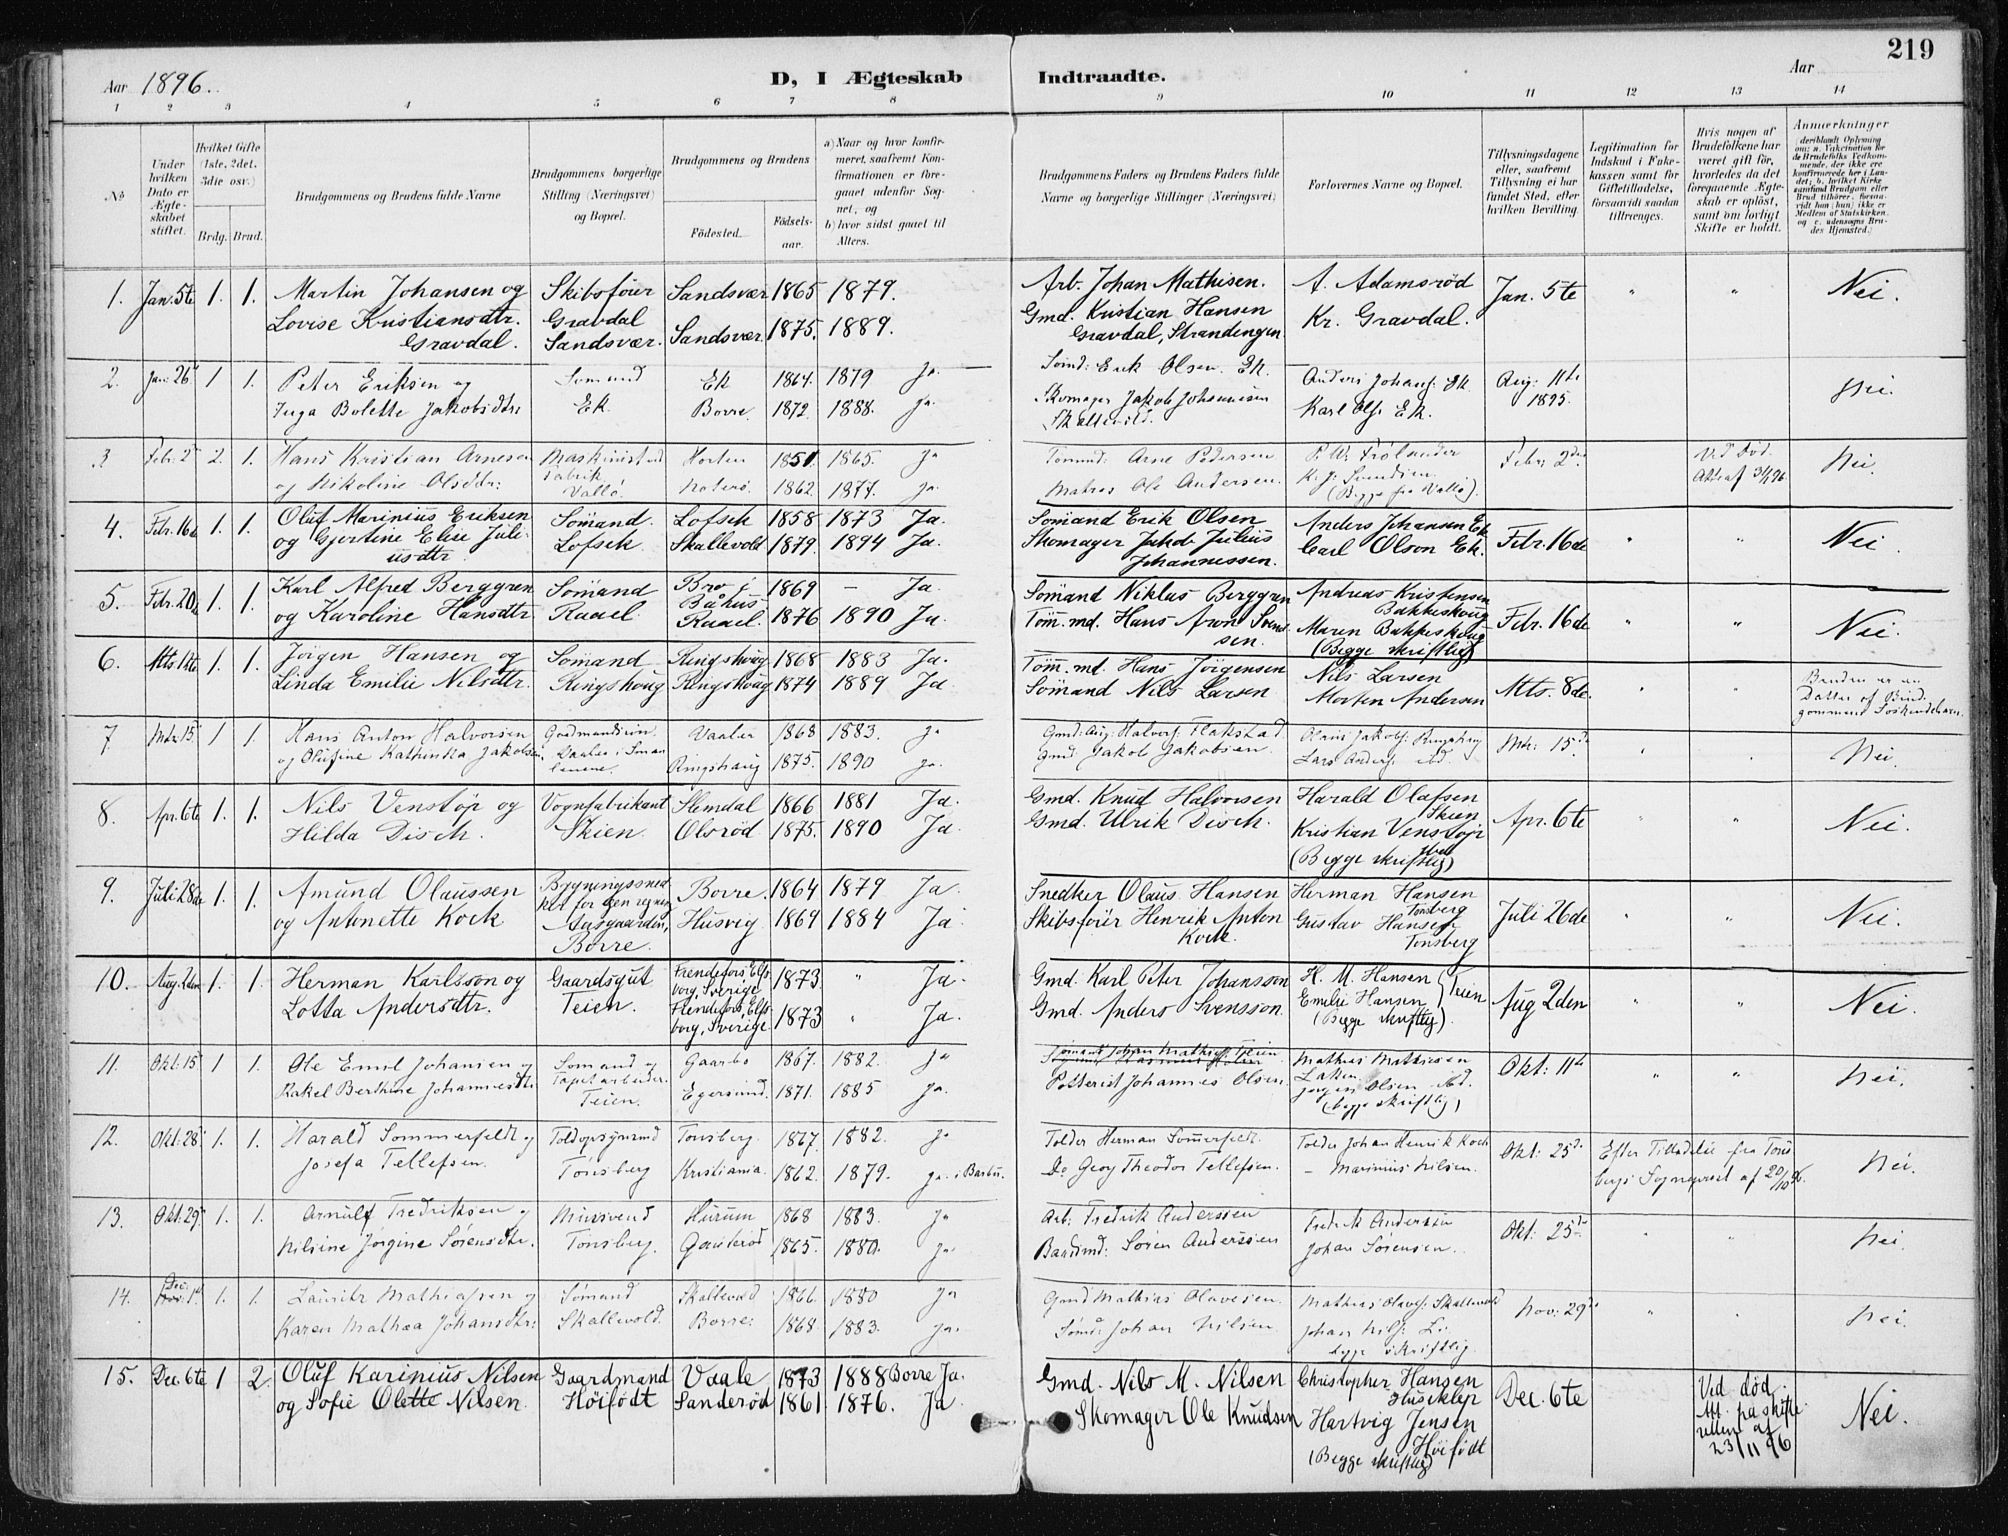 219
Aar 1896.
D, I Ægteskab Indtraadte.
Aar
1 2 3 4 5 6 7 8 9 10 11 12 13 14
No
Under hvilken Dato er Ægteskabet stiftet.
Hvilket Gifte (1ste, 2det, 3die osv.)
Brdg. Brud.
Brudgommens og Brudens fulde Navne
Brudgommens borgerlige Stilling (Næringsvei) og Bopæl.
Brudgommens og Brudens
Fødested. Fødselsaar.
a) Naar og hvor konfirmeret, saafremt Konfirmationen er foregaaet udenfor Sognet, og
b) hvor sidst gaaet til Alters.
Brudgommens Faders og Brudens Faders fulde Navne og borgerlige Stillinger (Næringsvei)
Forlovernes Navne og Bopæl.
Tillysningsdagene eller, saafremt Tillysning ei har fundet Sted, efter hvilken Bevilling.
Legitimation for Indskud i Enkekassen samt for Giftetilladelse, forsaavidt saadan tiltrænges.
Hvis nogen af Brudefolkene har været gift før, hvorledes da det foregaaende Ægteskab er opløst, samt om lovligt Skifte er holdt.
Anmærkninger
(deriblandt Oplysning om: a. Vakcination for de Brudefolks Vedkommende, der ikke ere konfirmerede her i Landet; b. hvilket Kirkesamfund Brudgom eller Brud tilhører, forsaavidt han (hun) ikke er Medlem af Statskirken, og c. udensogns Brudes Hjemsted.)
1. Jan. 5te 1. 1. Martin Johansen og Skibsfører Sandsvær 1865 1879. Arb. Johan Mathisen. A. Adamsrød Jan. 5te " " Nei.
Lovise Kristiansdtr. Gravdal Sandsvær 1875. 1889. Gmd. Kristian Hansen Kr. Gravdal.
Gravdal. Sandsvær. Gravdal, Strandengen
2. Jan: 26 1 1. Peter Eriksen og Sømand Ek 1864. 1879 Ja. Sømd: Erik Olsen. Ek. Anders Johans: Ek Aug: 11te Nei.
Inga Bolette Jakobsdtr: Ek. Borre 1872. 1888. ja. Skomager Jakob Johannesen Karl Ols: Ek. 1895.
Skallevold.
3 Febr: 2 2. 1. Hans Kristian Arnesen Maskinist Horten 1851. 1865. Ja Tømmd: Arne Pedersen Febr: 2den Ved Død. Nei.
og Nikoline Olsdtr: Fabrik Noterø. 1862. 1877. ja. Matros Ole Andersen. K. J. Svendsen
Vallø (Begge fra Vallø).
4. Febr. 16de 1. 1. Oluf Marinius Eriksen Sømand. Lofsek 1858 1873 Ja. Sømand Erik Olsen Anders Johansen Ek Febr. 16de " " Nei.
og Gjertine Elise Juli- Lofsek. Skallevold 1879. 1894 Ja. Skomager Jakob Julius Carl Olson Ek.
usdtr Johannessen.
5. Febr. 20de 1. 1. Karl Alfred Berggren Sømand Bro i 1869 – Ja. Sømand Niklas Berggren Andreas Kristensen Febr. 16de " " Nei.
og Karoline Hansdtr. Raael. Båhus Bakkeskoug
Raael. 1876 1890 Ja. Tøm.md. Hans Aron Svend- Maren Bakkeskoug
sen. (Begge skriftlig)
6. Mts 12te 1. 1. Jørgen Hansen og Sømand Ringshoug 1868 1883 Ja. Tøm.md. Hans Jørgensen Nils Larsen Mts. 8de " " Bruden er en
Linda Emilie Nilsdtr. Ringshoug Ringshoug 1874 1889 Ja. Sømand Nils Larsen Morten Andersen Datter af Brud-
gommens Søskendebarn.
7 Mts 15. 1 1. Hans Anton Halvorsen Vaaler 1868 1883. Ja Gmd: Aug: Halvors: Flakstad Olaus Jakobs: Ringshoug Mts: 15de Nei.
og Olufine Kathinka Jakobsen. Vaaler i Smaa- Ringshaug 1875. 1890 ja. Gmd: Jakob Jakobsen. Lars Anders: ibd.
lenene.
8. Apr. 6te 1. 1. Nils Venstøp og Vognfabrikant Slemdal 1866 1881 Ja. Gmd. Knud Halvorsen Harald Olafsen Apr. 6te " " Nei.
Hilda Disch. Skien. Olsrød 1875. 1890 Ja. Gmd. Ulrik Disch. Skien
Kristian Venstøp
ibid
(Begge skriftlig)
9. Juli 28de 1. 1. Amund Olaussen Bygningssned- Borre. 1864 1879 Ja. Snedker Olaus Hansen Herman Hansen Juli 26de " " Nei.
og Antonette Kock ker for egen regning Husvig 1869 1884 Ja. Skibsfører Henrik Anton Tønsberg
Aasgaarden, Kock. Gustav Hansen
Borre. Tønsberg
10. Aug. 2den 1. 1. Herman Karlsson og Gaardsgut Frendefors Elfs- 1873 " Ja. Gmd. Karl Peter Johansson H. M. Hansen Teien Aug 2den " " Nei.
Lotta Andersdtr. Teien. borg, Sverige Emilie Hansen
Frendefors, Elfs- 1873 " Ja. Gmd. Anders Svensson. (Begge skriftlig).
borg, Sverige
11. Okt. 15 1 1. Ole Emil Johansen og Sømand og Gaarbo 1867. 1882. ja Sømand Johan Mathias: Teien Mathias Mathisen Okt: 11te " " Nei.
Rakel Berthine Johannesdtr. Tapetarbeider. Egersund. 1871. 1885 ja. Potterist Johannes Olsen. Jørgen Olsen ibd.
Teien. (begge skriftlig)
12. Okt: 28 1. 1. Harald Sommerfeldt og Toldopsynsmd Tønsberg. 1867. 1882. ja Tolder Herman Sommerfeldt. Tolder Johan Henrik Koch Okt: 25de Efter Tilladelse fra Tøns- Nei.
Josefa Tellefsen. Tønsberg Kristiania. 1862. 1879. ja. i Barbu. Do Georg Theodor Tellefsen. – Marinius Nilsen. bergs Sognepræst af 20/10 96.
13. Okt. 29 1. 1. Arnulf Fredriksen og Mursvend Hurum 1868 1883. ja Arb: Fredrik Anderssen Fredrik Anderssen Okt: 25de " " Nei.
Nilsine Jørgine Sørensdtr. Tønsberg. Gauterød 1865. 1880. ja. Baadsmd: Søren Anderssen Johan Sørensen.
14. Dec: 1te 1. 1. Lauritz Mathiassen og Sømand Skallevold 1866. 1880 ja Gmd Mathias Olavesen. Mathias Olaves: Skallevold Nov: 29de " " Nei.
Karen Mathea Johansdtr: Skallevold. Borre. 1868. 1883. ja. Sømd: Johan Nilsen. Johan Nils:
begge skriftlig.
15. Dec. 6te 1 2. Oluf Karinius Nilsen Gaardmand Vaale 1873 1888 Borre Ja. Gmd. Nils M. Nilsen Christopher Hansen Dec. 6te Ved død. Nei.
og Sofie Olette Nilsen. Høifødt Sanderød 1861. 1876. Ja. Skomager Ole Knudsen Huseklep Att. på skifte-
Hartvig Jensen retten af
Høifødt 23/11 96
(Begge skriftlig)